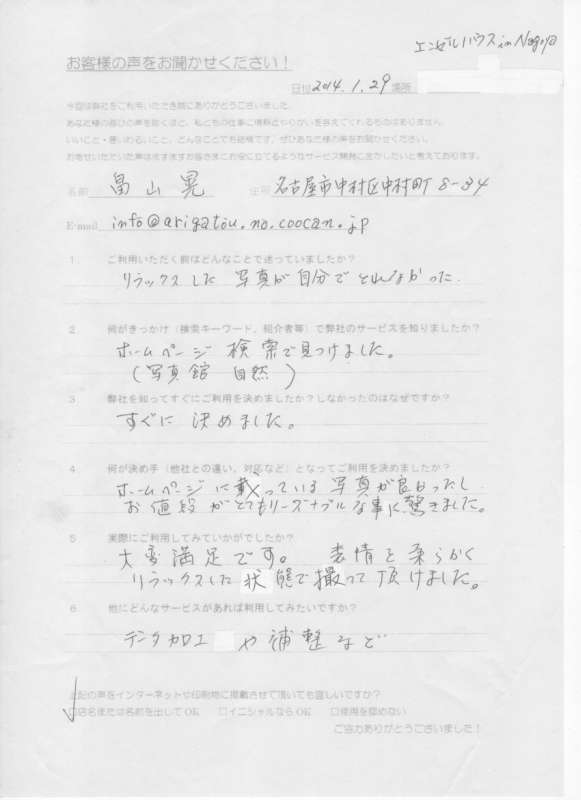 エンゼルハウス in Nagoya
お客様の声をお聞かせください！
日付 2014.1.29 場所
今回は弊社をご利用いただき誠にありがとうございました。
あなた様の喜びの声を聞くほど、私どもの仕事に情熱とやりがいを与えてくれるものはありません。
いいこと・悪いわるいこと、どんなことでも結構です。ぜひあなた様の声をお聞かせください。
お寄せいただいた声はますますお客さまにお役に立てるようなサービス開発に生かしたいと考えております。
名前 畠山晃 住所 名古屋市中村区中村町 8-34
E-mail info@arigatou.no.coocan.jp
1. ご利用いただく前はどんなことで迷っていましたか？
リラックスした 写真が自分でとれなかった.
2. 何がきっかけ（検索キーワード、紹介者等）で弊社のサービスを知りましたか？
ホームページ 検索で見つけました。
(写真館 自然)
3. 弊社を知ってすぐにご利用を決めましたか？しなかったのはなぜですか？
すぐに 決めました。
4. 何が決め手（他社との違い、対応など）となってご利用を決めましたか？
ホームページに載っている 写真が良かったし
お値段がとてもリーズナブルな事に驚きました。
5. 実際にご利用してみていかがでしたか？
大変満足です。 表情を柔らかく
リラックスした 状態で撮って頂けました。
6. 他にどんなサービスがあれば利用してみたいですか？
データ加工 や補整など
上記の声をインターネットや印刷物に掲載させて頂いても宜しいですか？
□店名または名前を出してOK □イニシャルならOK □使用を認めない
ご協力ありがとうございました！